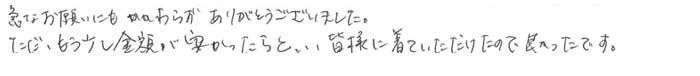 急なお願いにもかかわらずありがとうございました。
ただ、もう少し金額が安かったらと、、、皆様に着ていただけたので良かったです。